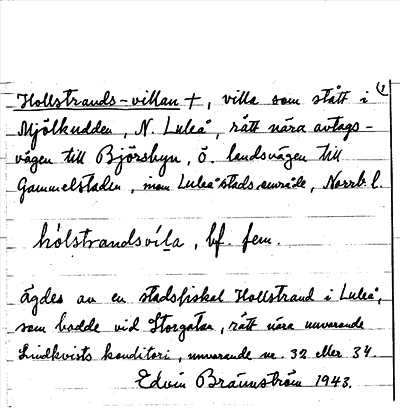 Hollstrands-villan +, villa som stått i
Mjölkudden, N. Luleå, rätt nära avtags-
vägen till Björsbyn, ö. landsvägen till
Gammelstaden, inom Luleå stads område, Norrb. l.
hólstrandsvíla, bf. fem.
ägdes av en stadsfiskal Hollstrand i Luleå,
som bodde vid Storgatan, rätt nära nuvarande
Lindkvists konditori, nuvarande nr. 32 eller 34.
Edvin Brännström 1943.